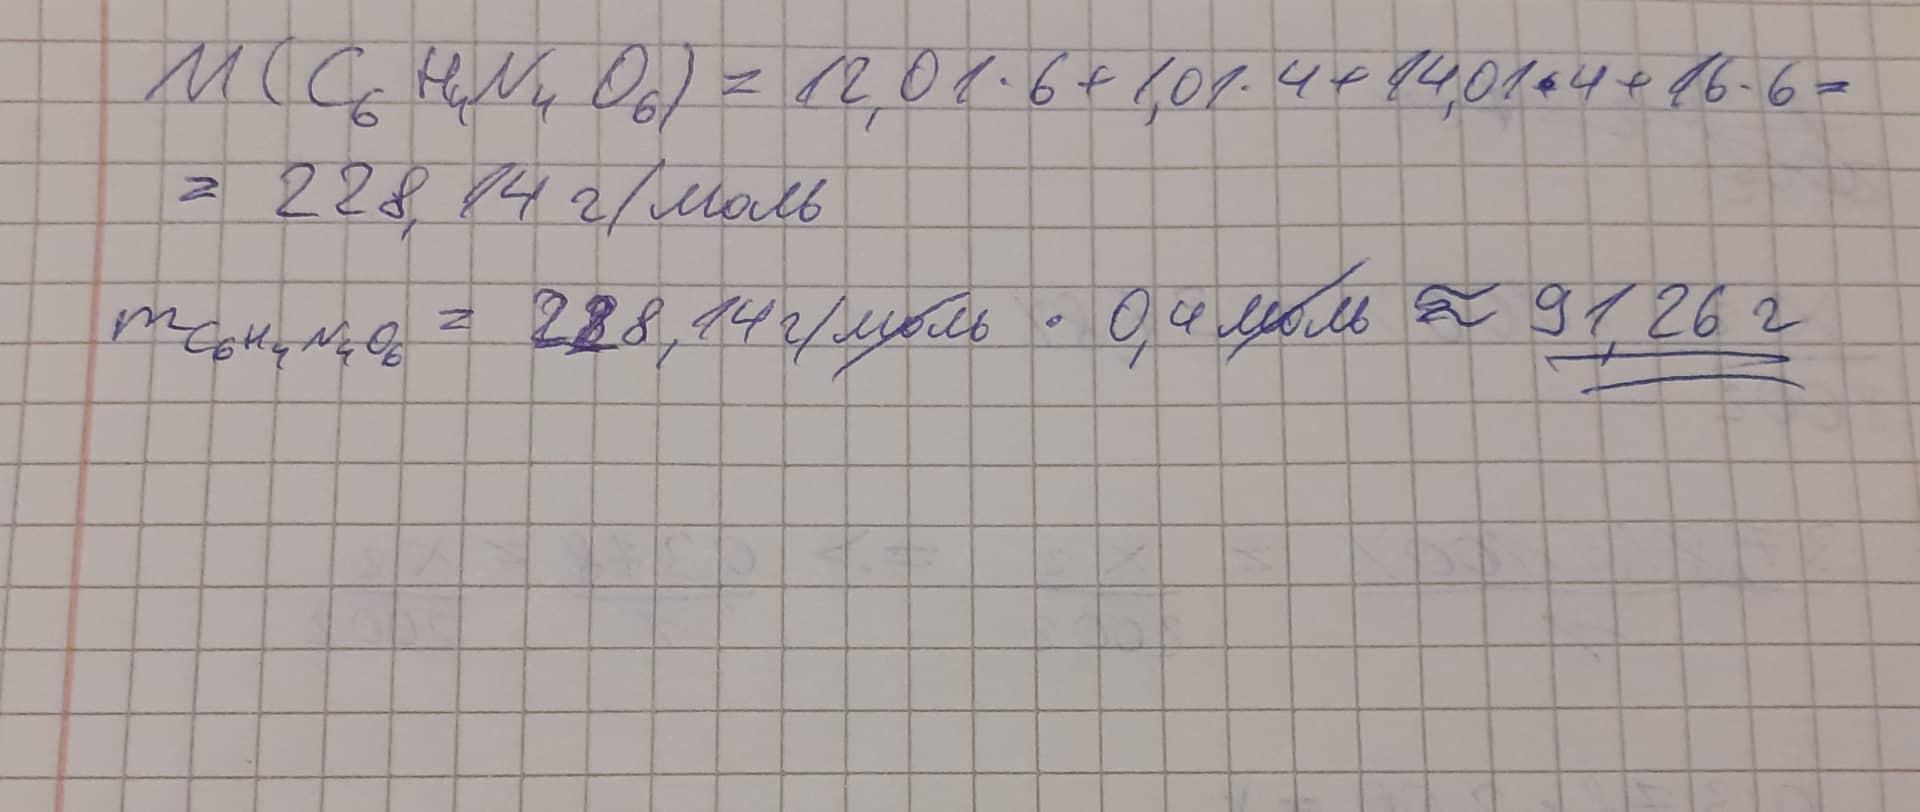 M(C₆H₄N₄O₆) = 12,01·6+1,01·4+14,01·4+16·6=
= 228,14 г/моль
m C₆H₄N₄O₆ = 228,14 г/моль · 0,4 моль ≈ 91,26 г